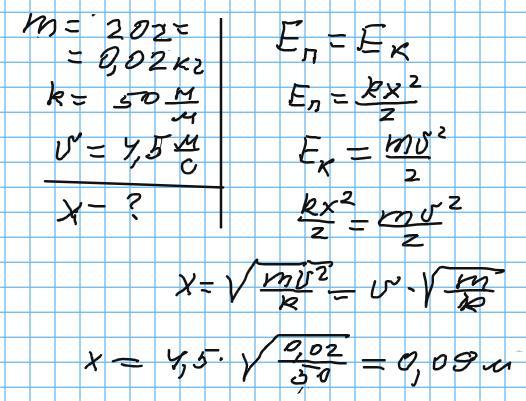 m = 20г =
= 0,02 кг
k = 50 н/м
v = 4,5 м/с
x - ?
Eп = Eк
Eп = kx²/2
Eк = mv²/2
kx²/2 = mv²/2
x = √(mv²/k) = v · √(m/k)
x = 4,5 · √(0,02/50) = 0,09 м